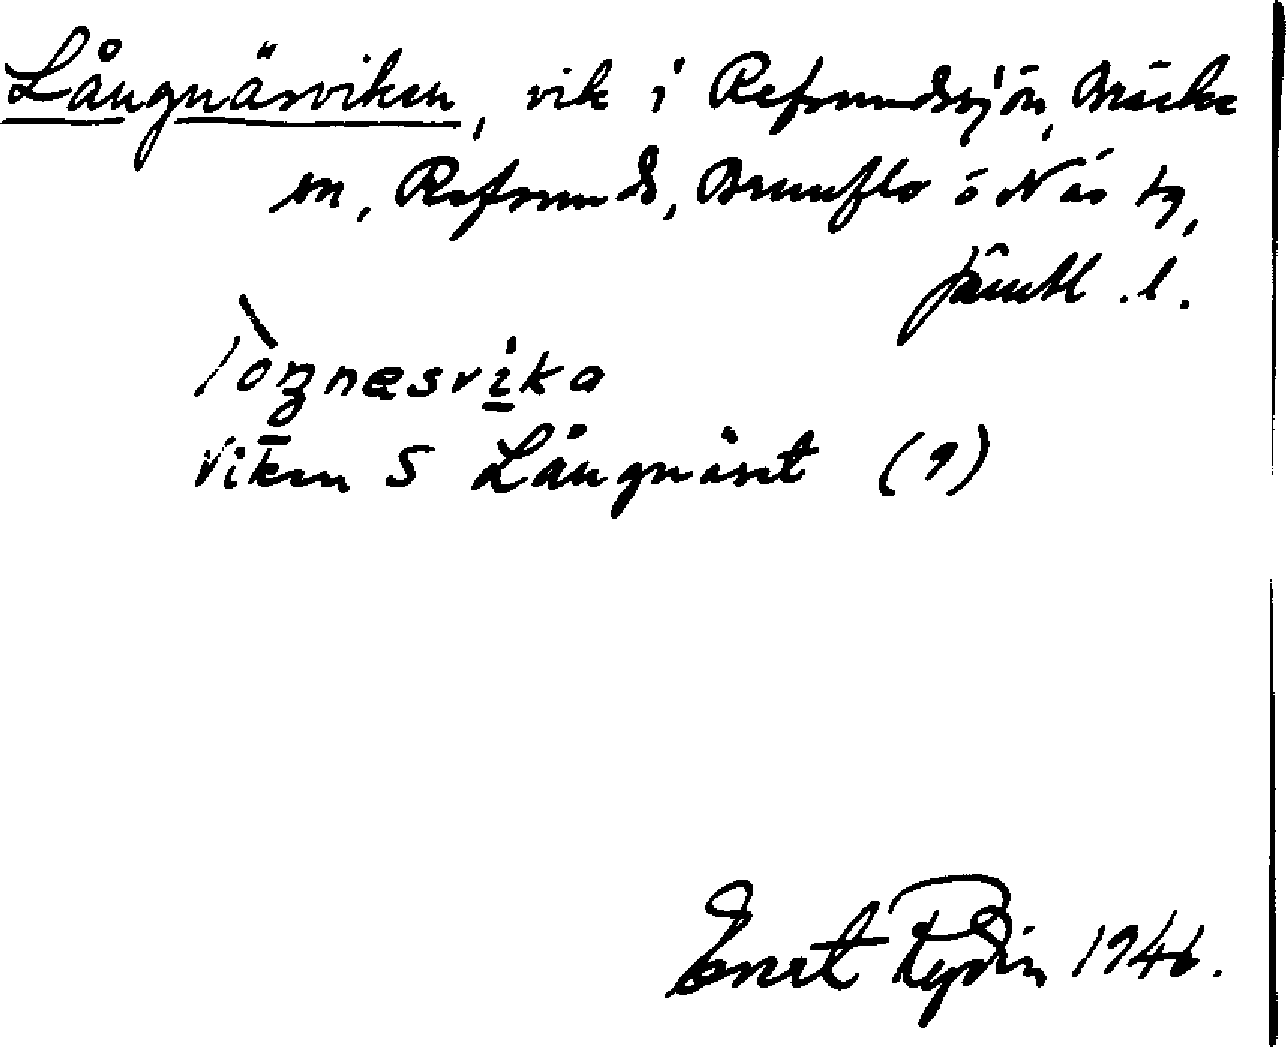 Långnäsviken, vik i Refsundssjön, Bräcke
sn, Refsunds, Brunflo o Näs tg,
Jämtl. l.
lòŋnæsvika
Viken S Långnäset (9)
Evert Rydin 1946.